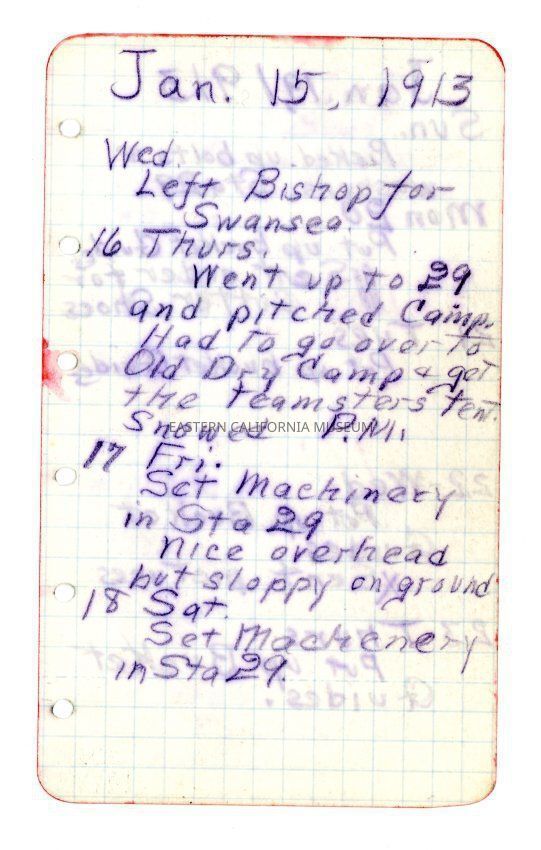 Jan. 15, 1913
Wed.
Left Bishop for
Swansea.
16 Thurs.
Went up to 29
and pitched Camp.
Had to go over to
Old Dry Camp & get
the teamsters tent.
Snowed P.M.
EASTERN CALIFORNIA MUSEUM
17 Fri.
Set Machinery
in Sta 29
Nice overhead
but sloppy on ground
18 Sat.
Set Machenery
in Sta 29.